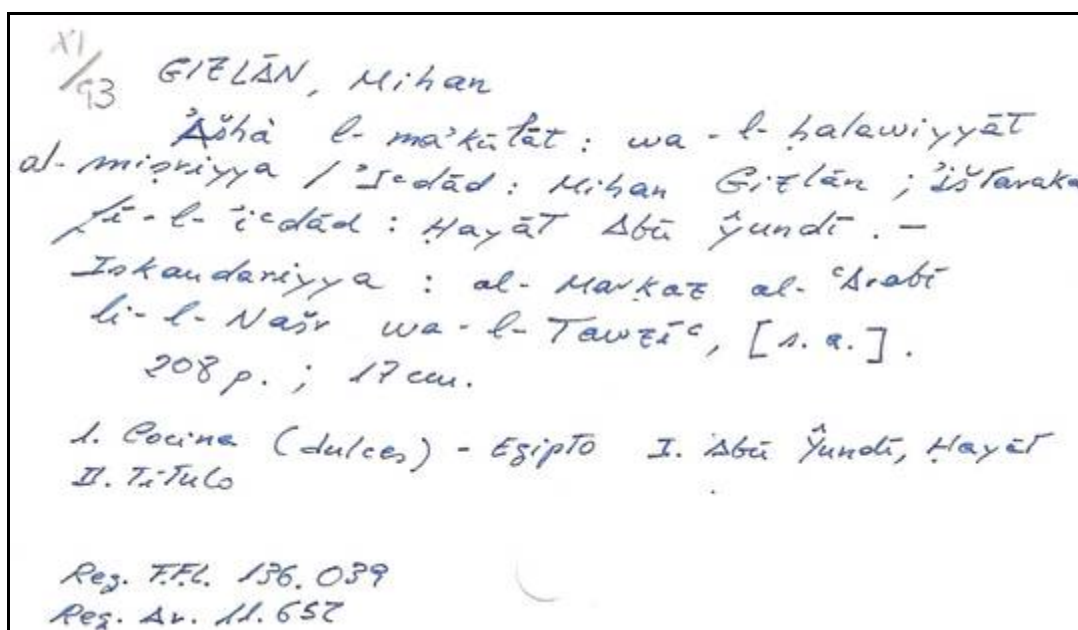 XI/93
GIZLĀN, Mihan
ʾAšhà l-maʾkūlāt : wa-l-ḥalawiyyāt
al-miṣriyya / ʾIᶜdād : Mihan Gizlān ; ʾištaraka
fī-l-iᶜdād : Ḥayāt Abū Ŷundī. —
Iskandariyya : al-Markaz al-ᶜArabī
li-l-Našr wa-l-Tawzīᶜ, [s.a.].
208 p. ; 17 cm.
1. Cocina (dulces) - Egipto I. Abū Ŷundī, Ḥayāt
II. Título
Reg. F.F.L. 136.039
Reg. Ar. 11.657